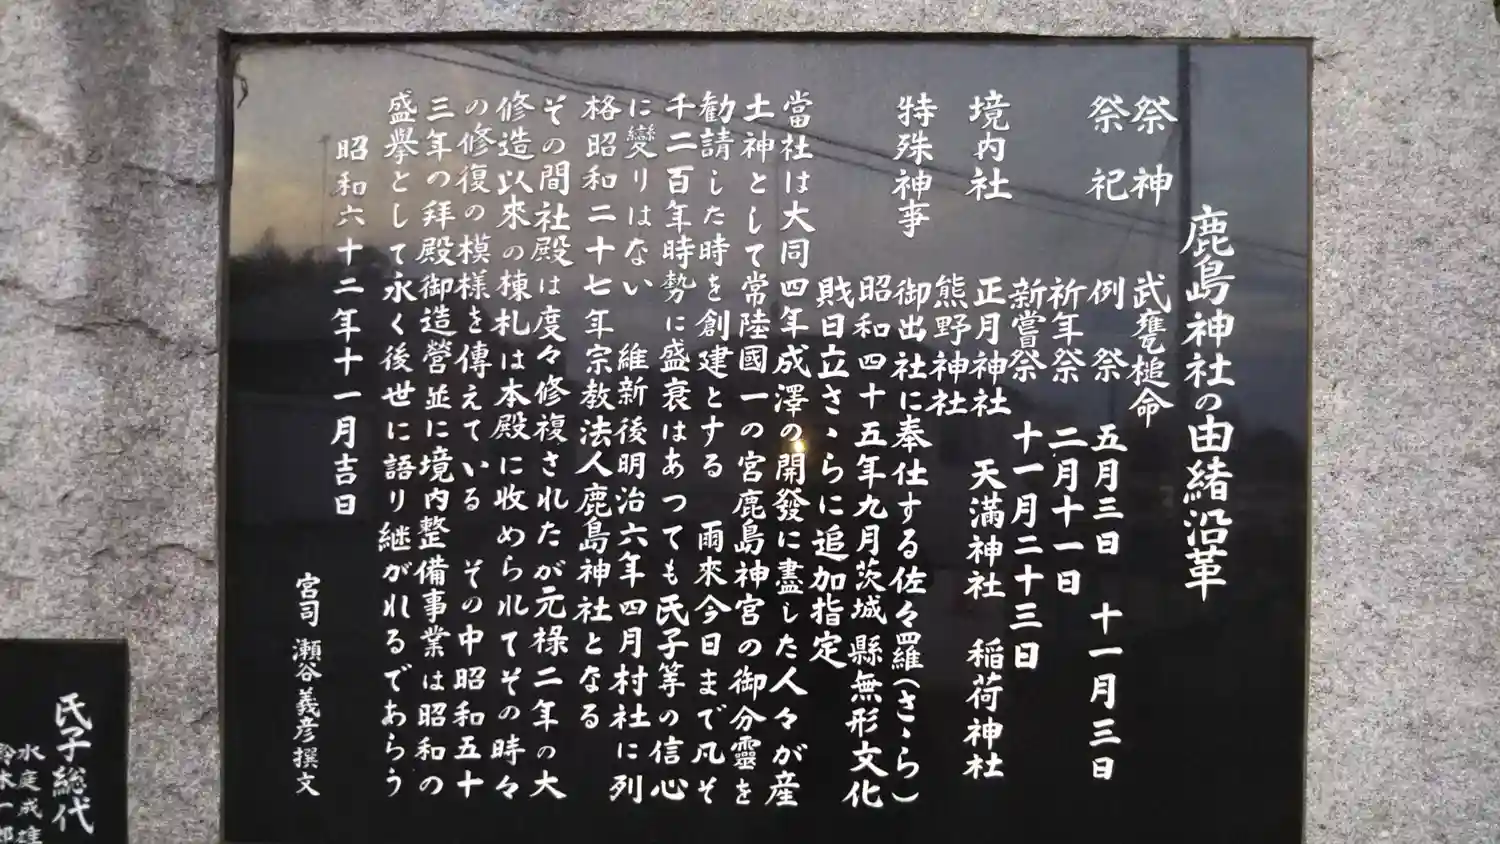 鹿島神社の由緒沿革
祭神 武甕槌命
祭祀 例祭 五月三日 十一月三日
祈年祭 二月十一日
新嘗祭 十一月二十三日
境内社 正月神社 天満神社 稲荷神社
熊野神社
特殊神事 御出社に奉仕する佐々羅(さゝら)
昭和四十五年九月茨城縣無形文化
戝日立さゝらに追加指定
當社は大同四年成澤の開發に盡した人々が産
土神として常陸國一の宮鹿島神宮の御分靈を
勧請した時を創建とする 雨來今日まで凡そ
千二百年時勢に盛衰はあつても氏子等の信心
に變りはない 維新後明治六年四月村社に列
格昭和二十七年宗教法人鹿島神社となる
その間社殿は度々修複されたが元禄二年の大
修造以來の棟札は本殿に收められてその時々
の修復の模様を傳えている その中昭和五十
三年の拜殿御造營並に境内整備事業は昭和の
盛擧として永く後世に語り継がれるであらう
昭和六十二年十一月吉日
宮司 瀬谷義彦撰文
氏子総代
水庭成雄
鈴木一郎